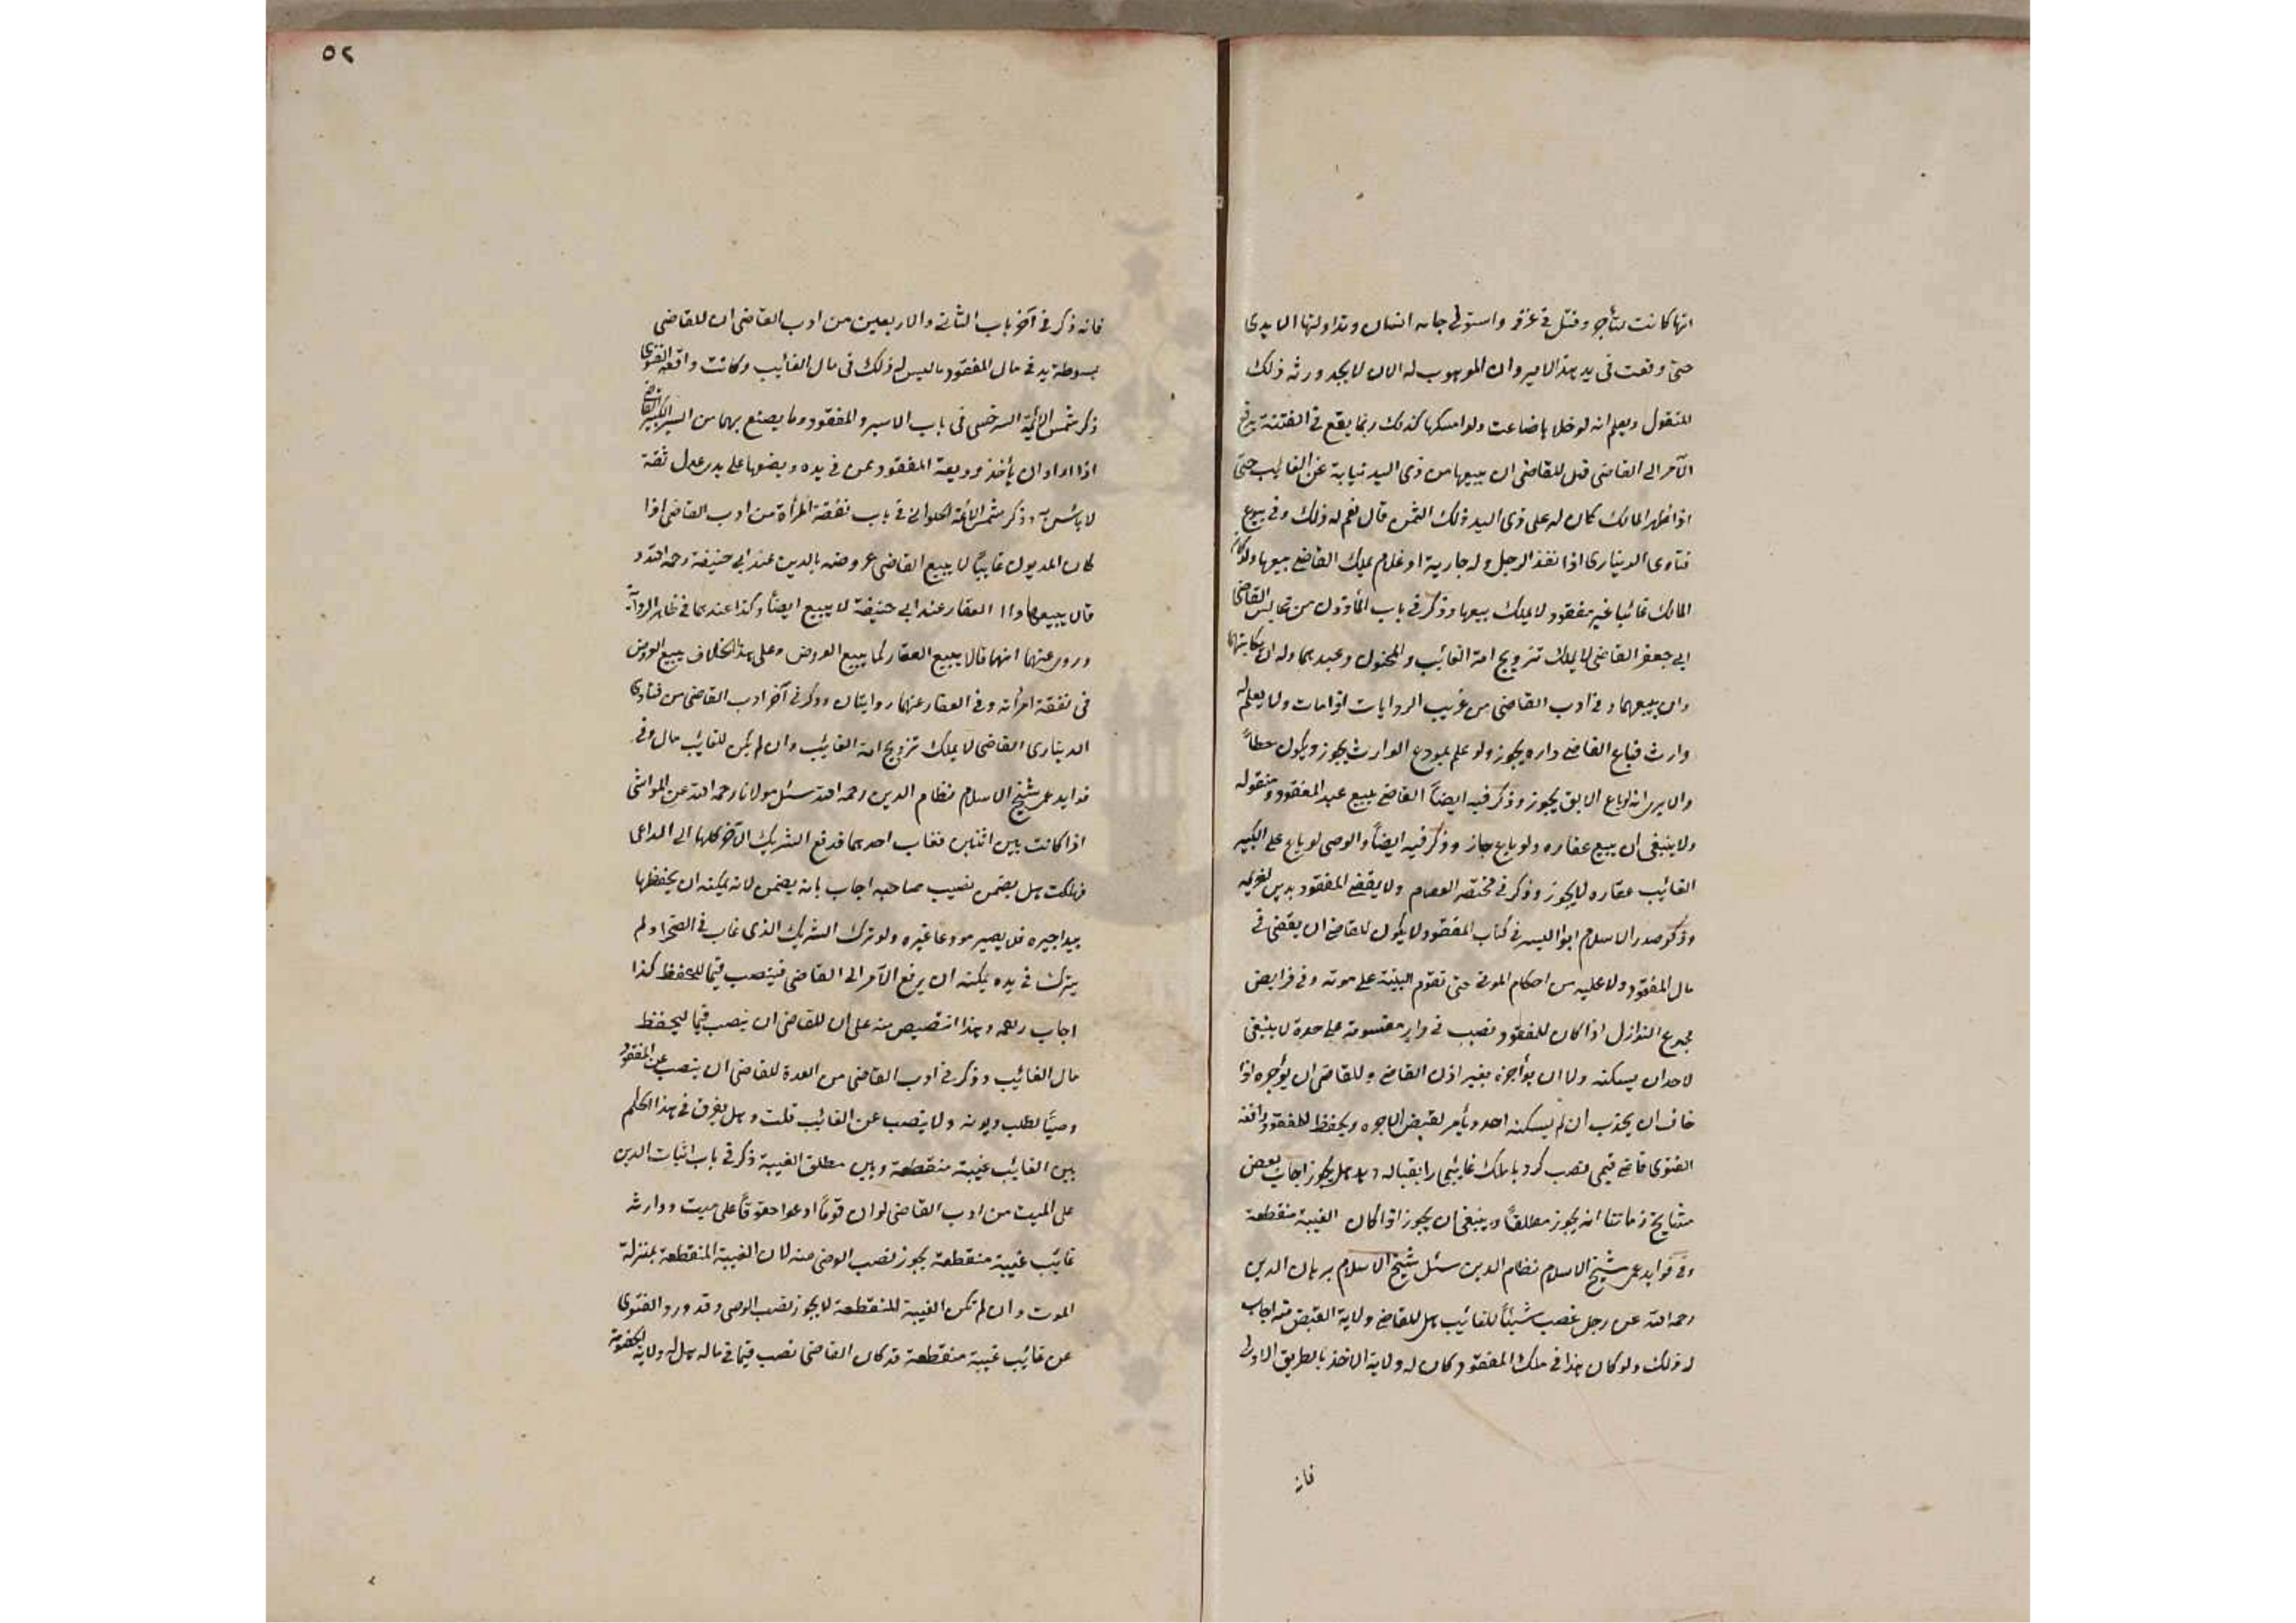 انها كانت لتأجر وقتل في غزو واستولى جانه انسان وتداولتها الايدي
حتى وقعت في يد هذا الامير وان الموهوب له الان لا يجد ورثه ذلك
المنقول ويعلم انه لو خلاها ضاعت ولو امسكها كذلك ربما يقع في الفتنة يرفع
الامر الى القاضي قبل للقاضي ان يبيعها من ذى اليد نيابة عن الغايب حتى
اذا ظهر المالك كان له على ذى اليد ذلك الثمن قال نعم له ذلك وفي بيوع
فتاوى الديناري اذا فقد الرجل وله جارية او غلام يملك القاضي بيعها ولو كان
المالك غائبا غير مفقود لا يملك بيعها وذكر في باب المأذون من مجالس القاضي
ابي جعفر القاضي لا يملك تزويج امة الغائب والمجنون وعبدهما وله ان يكاتبهما
وان يبيعهما وفي ادب القاضي من غريب الروايات اذا مات ولا يعلم له
وارث فباع القاضي داره يجوز ولو علم بموضع الوارث يجوز ويكون خطأ
والا يرى انه لو باع الابق يجوز وذكر فيه ايضاً القاضي يبيع عبد المفقود ومنقوله
ولا ينبغي ان يبيع عقاره ولو باع جاز وذكر فيه ايضاً والوصي لو باع على الكبير
الغائب عقاره لا يجوز وذكر في مختصر العصام ولا يقضى المفقود بدين لغريمه
وذكر صدر الاسلام ابو اليسر في كتاب المفقود لا يكون للقاضي ان يقضى في
مال المفقود ولا عليه من احكام الموتى حتى تقوم البينة على موته وفي فرايض
مجموع النوازل اذا كان للمفقود نصيب في دار مقسومة على حدة لا ينبغي
لاحد ان يسكنه ولا ان يؤاجره بغير اذن القاضي وللقاضي ان يؤجره اذا
خاف ان يخرب ان لم يسكنه احد ويأمر بقبض الاجره ويحفظ للمفقود واقعة
الفتوى قاضي قيمي نصب كرد با ملك غايبي را بقباله دهد هل يجوز اجاب بعض
مشايخ زماننا انه يجوز مطلقاً وينبغي ان يجوز اذا كان الغيبة منقطعة
وفي فوايد عمر شيخ الاسلام نظام الدين سئل شيخ الاسلام برهان الدين
رحمه الله عن رجل غصب شيئاً للغائب هل للقاضي ولاية القبض منه اجاب
له ذلك ولو كان هذا في ملك المفقود كان له ولاية الاخذ بالطريق الاولى
فانه
٥٢
فانه ذكر في آخر باب الثاني والاربعين من ادب القاضي ان للقاضي
بسوطة يد في مال المفقود ما ليس له ذلك في مال الغائب وكانت واقعة الفتوى
ذكر شمس الائمة السرخسي في باب الاسير والمفقود وما يصنع بهما من السير الكبير القاضي
اذا اراد ان يأخذ وديعة المفقود عمن في يده ويضعها على يدى عدل ثقة
لا بأس به وذكر شمس الائمة الحلواني في باب نفقة المرأة من ادب القاضي اذا
كان المديون غايباً لا يبيع القاضي عروضه بالدين عند ابي حنيفة رحمه الله و
قالا يبيعها واا العقار عند ابي حنيفة لا يبيع ايضاً وكذا عندهما في ظاهر الرواية
وروى عنهما انهما قالا يبيع العقار كما يبيع العروض وعلى هذا الخلاف بيع العروض
في نفقة امرأته وفي العقار عنهما روايتان وذكر في آخر ادب القاضي من فتاوى
الديناري القاضي لا يملك تزويج امة الغائب وان لم يكن للغائب مال وفي
فوايد عمر شيخ الاسلام نظام الدين رحمه الله سئل مولانا رحمه الله عن المواشي
اذا كانت بين اثنين فغاب احدهما فدفع الشريك الاخر كلها الى الراعي
فهلكت هل يضمن نصيب صاحبه اجاب بانه يضمن لانه يمكنه ان يحفظها
بيد اجيره فلا يصير مودعا غيره ولو ترك الشريك الذى غاب في الصحرا ولم
يترك في يده يمكنه ان يرفع الامر الى القاضي فينصب قيما للحفظ كذا
اجاب رحمه وهذا انتصيص منه على ان للقاضي ان ينصب قيما ليحفظ
مال الغائب وذكر في ادب القاضي من العدة للقاضي ان ينصب عن المفقود
وصيًا لطلب ديونه ولا ينصب عن الغائب قلت وهل يفرق في هذا الحكم
بين الغائب غيبة منقطعة وبين مطلق الغيبة ذكر في باب اثبات الدين
على الميت من ادب القاضي لو ان قوماً ادعوا حقوقاً على ميت ووارثه
غايب غيبة منقطعة يجوز نصب الوصي منه لان الغيبة المنقطعة بمنزلة
الموت وان لم تكن الغيبة المنقطعة لا يجوز نصب الوصي وقد ورد الفتوى
عن غائب غيبة منقطعة قد كان القاضي نصب قيما في ماله هل له ولاية الخصومة